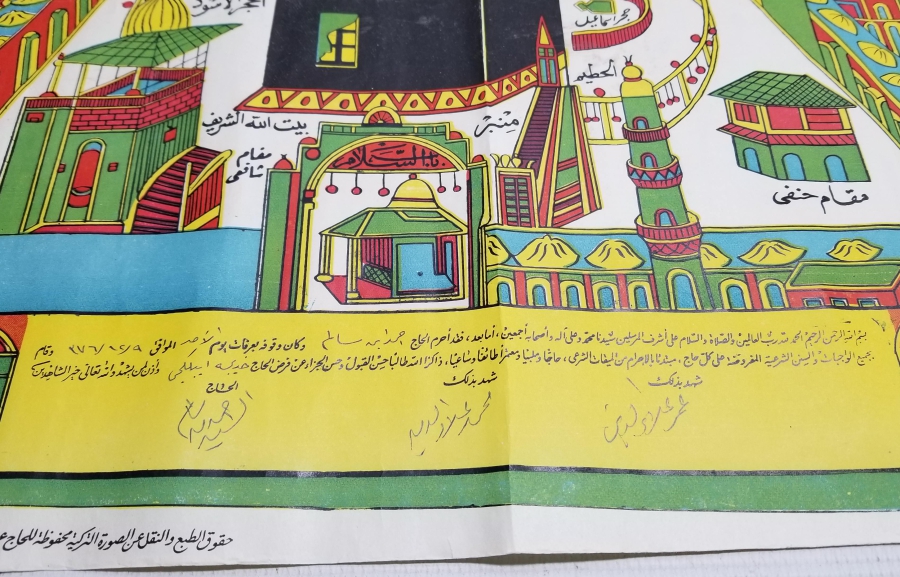 الحجر الأسود
حجر إسماعيل
الحطيم
منبر
بيت الله الشريف
مقام شافعي
باب السلام
مقام حنفي
بسم الله الرحمن الرحيم الحمد لله رب العالمين والصلاة والسلام على أشرف المرسلين سيدنا محمد وعلى آله وأصحابه أجمعين، أما بعد، فقد أحرم الحاج حمد به سالم وكان وقوفه بعرفات يوم الأحد الموافق ٩/١٢/٣٧٦ وقام
بجميع الواجبات والسنن الشرعية المفروضة على كل حاج، مبتدئا بالإحرام من الميقات الشرعي، حاجا وملبيا ومعتمرا طائفا وساعيا، ذاكرا الله طالبا حسن القبول وحسن الجزاء عن فرض الحاج وأذن بمن يشهد والله تعالى خير الشاهدين
شهد بذلك شهد بذلك الحاج
محمد علاء الدين
حقوق الطبع والنقل عن الصورة التركية محفوظة للحاج